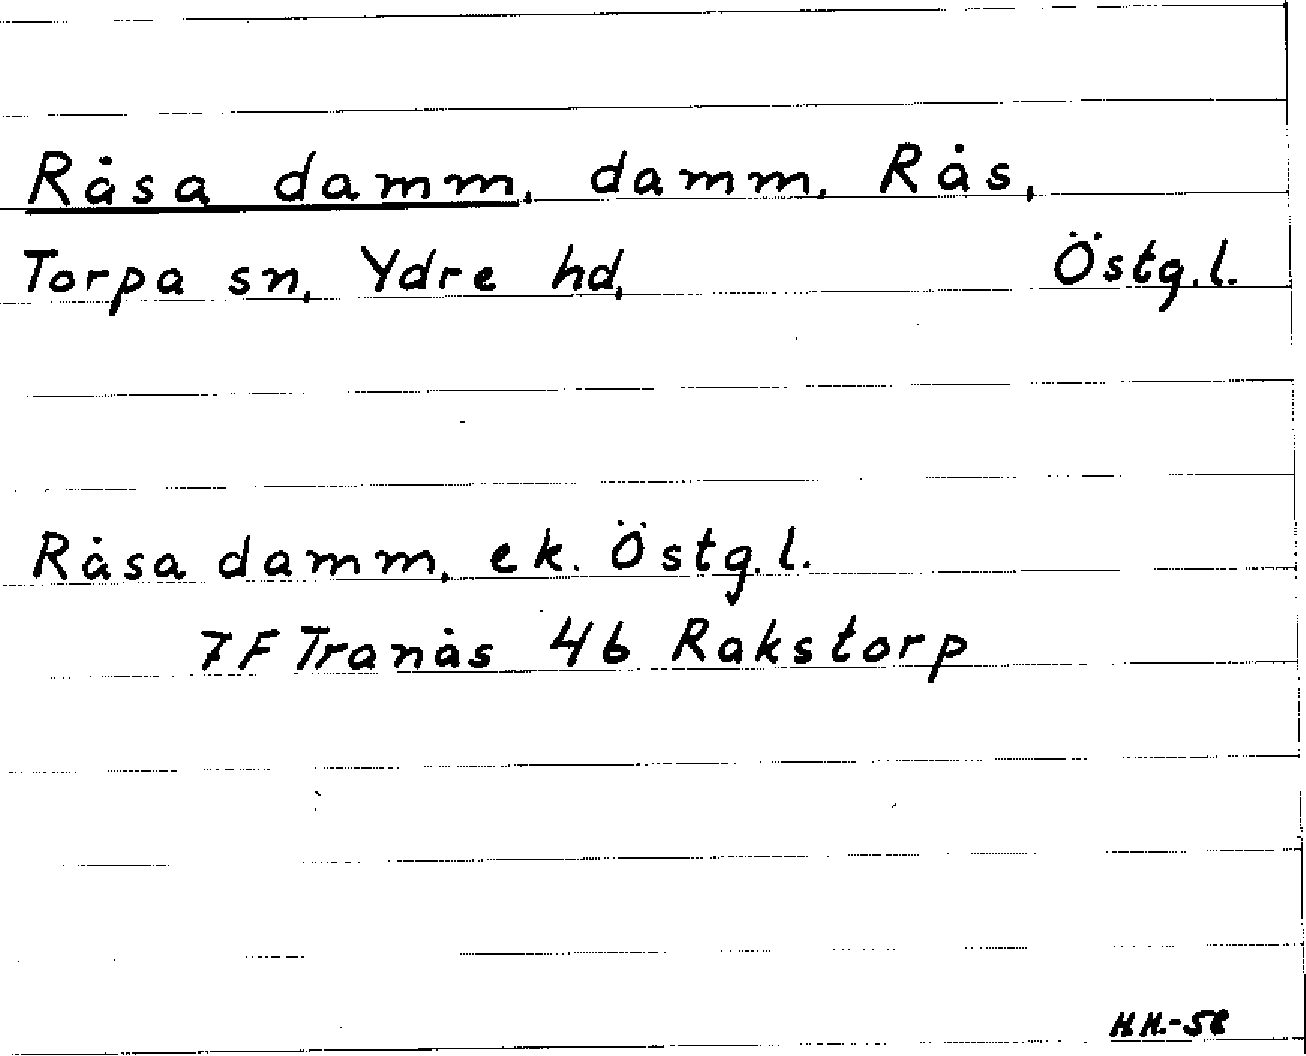 Råsa damm, damm, Rås,
Torpa sn, Ydre hd, Östg.l.
Råsa damm, ek. Östg.l.
7F Tranås 4b Rakstorp